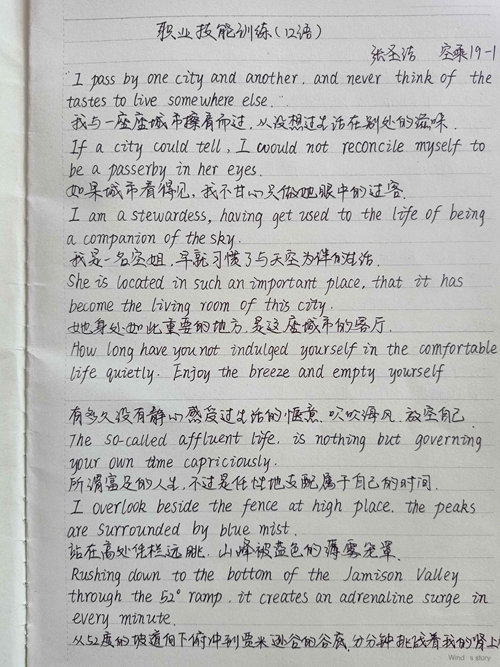 职业技能训练(口语)
张圣洁 空乘19-1
I pass by one city and another, and never think of the
tastes to live somewhere else.
我与一座座城市擦肩而过,从没想过生活在别处的滋味.
If a city could tell, I would not reconcile myself to
be a passerby in her eyes.
如果城市看得见,我不甘心只做她眼中的过客.
I am a stewardess, having get used to the life of being
a companion of the sky.
我是一名空姐,早就习惯了与天空为伴的生活.
She is located in such an important place, that it has
become the living room of this city.
她身处如此重要的地方,是这座城市的客厅.
How long have you not indulged yourself in the comfortable
life quietly. Enjoy the breeze and empty yourself
有多久没有静心感受过生活的惬意.吹吹海风.放空自己.
The so-called affluent life, is nothing but governing
your own time capriciously.
所谓富足的人生,不过是任性地支配属于自己的时间.
I overlook beside the fence at high place, the peaks
are surrounded by blue mist.
站在高处凭栏远眺,山峰被蓝色的薄雾笼罩.
Rushing down to the bottom of the Jamison Valley
through the 52° ramp, it creates an adrenaline surge in
every minute.
从52度的坡道向下俯冲到贾米逊谷的谷底,分分钟挑战着我的肾上
Wind's story